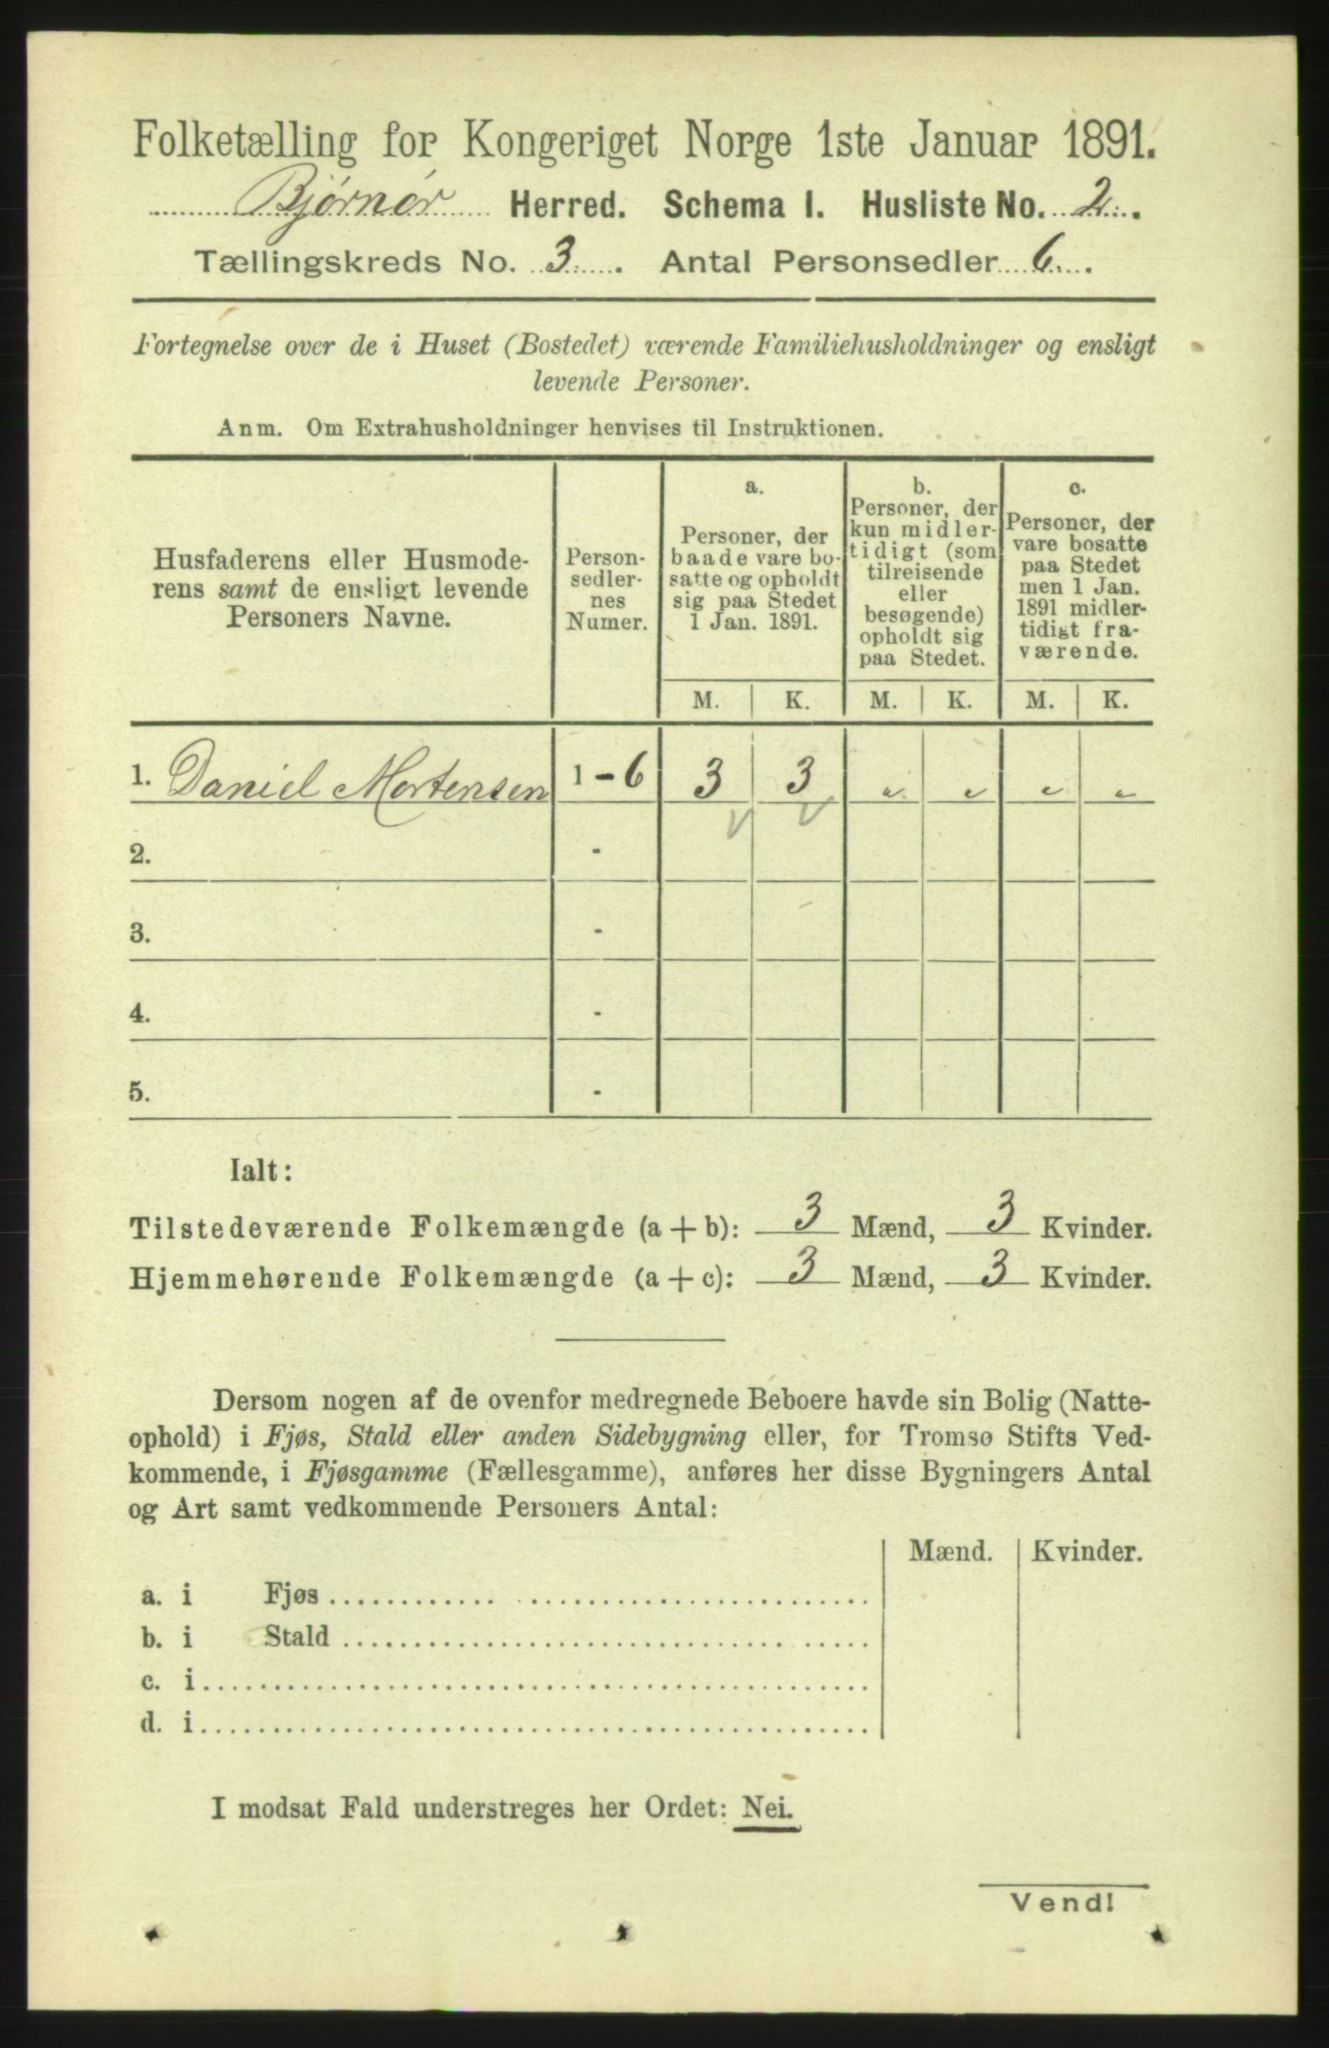 Folketælling for Kongeriget Norge 1ste Januar 1891.
Bjørnør Herred. Schema I. Husliste No. 2.
Tællingskreds No. 3. Antal Personsedler 6.
Fortegnelse over de i Huset (Bostedet) værende Familiehusholdninger og ensligt
levende Personer.
Anm. Om Extrahusholdninger henvises til Instruktionen.
Husfaderens eller Husmode-
rens samt de ensligt levende
Personers Navne.
Person-
sedler-
nes
Numer.
a.
Personer, der
baade vare bo-
satte og opholdt
sig paa Stedet
1 Jan. 1891.
b.
Personer, der
kun midler-
tidigt (som
tilreisende
eller
besøgende)
opholdt sig
paa Stedet.
c.
Personer, der
vare bosatte
paa Stedet
men 1 Jan.
1891 midler-
tidigt fra-
værende.
M. K. M. K. M. K.
1. Daniel Mortensen 1-6 3 3 „ „ „ „
2. -
3. -
4. -
5. -
Ialt:
Tilstedeværende Folkemængde (a + b): 3 Mænd, 3 Kvinder.
Hjemmehørende Folkemængde (a + c): 3 Mænd, 3 Kvinder.
Dersom nogen af de ovenfor medregnede Beboere havde sin Bolig (Natte-
ophold) i Fjøs, Stald eller anden Sidebygning eller, for Tromsø Stifts Ved-
kommende, i Fjøsgamme (Fællesgamme), anføres her disse Bygningers Antal
og Art samt vedkommende Personers Antal:
Mænd. Kvinder.
a. i Fjøs
b. i Stald
c. i
d. i
I modsat Fald understreges her Ordet: Nei.
Vend!